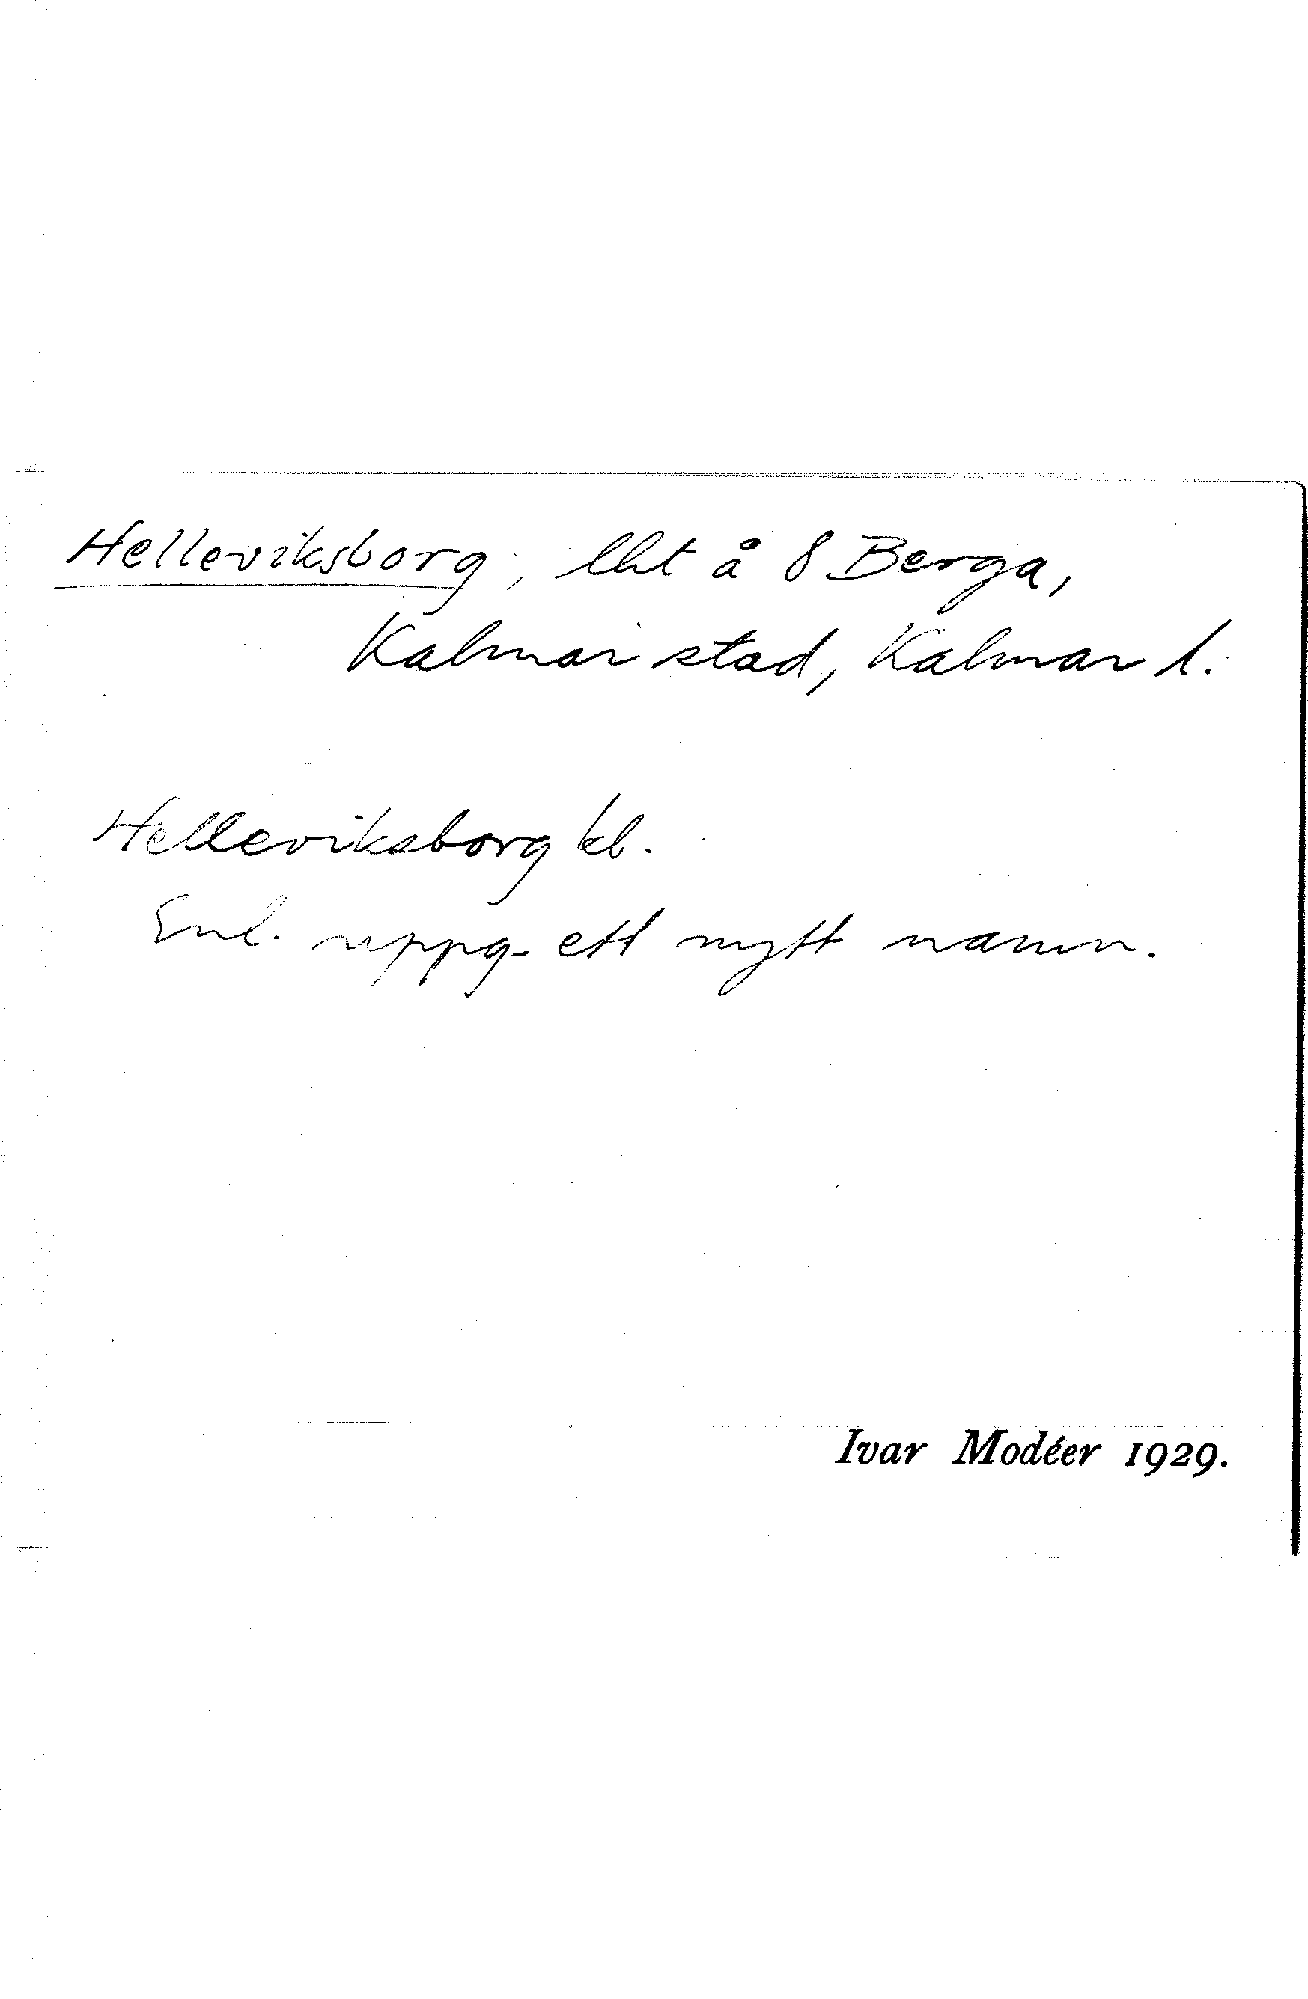 Helleviksborg, lht å 8 Berga,
Kalmar stad, Kalmar l.
Helleviksborg kb.
Enl. uppg. ett nytt namn.
Ivar Modéer 1929.